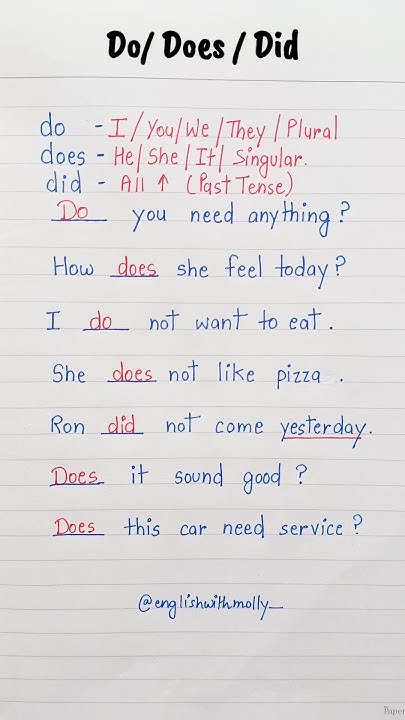 Do/ Does / Did
do - I / You / We / They / Plural
does - He / She / It / Singular.
did - All ↑ (Past Tense)
Do you need anything?
How does she feel today?
I do not want to eat.
She does not like pizza.
Ron did not come yesterday.
Does it sound good?
Does this car need service?
@englishwithmolly_
Paper